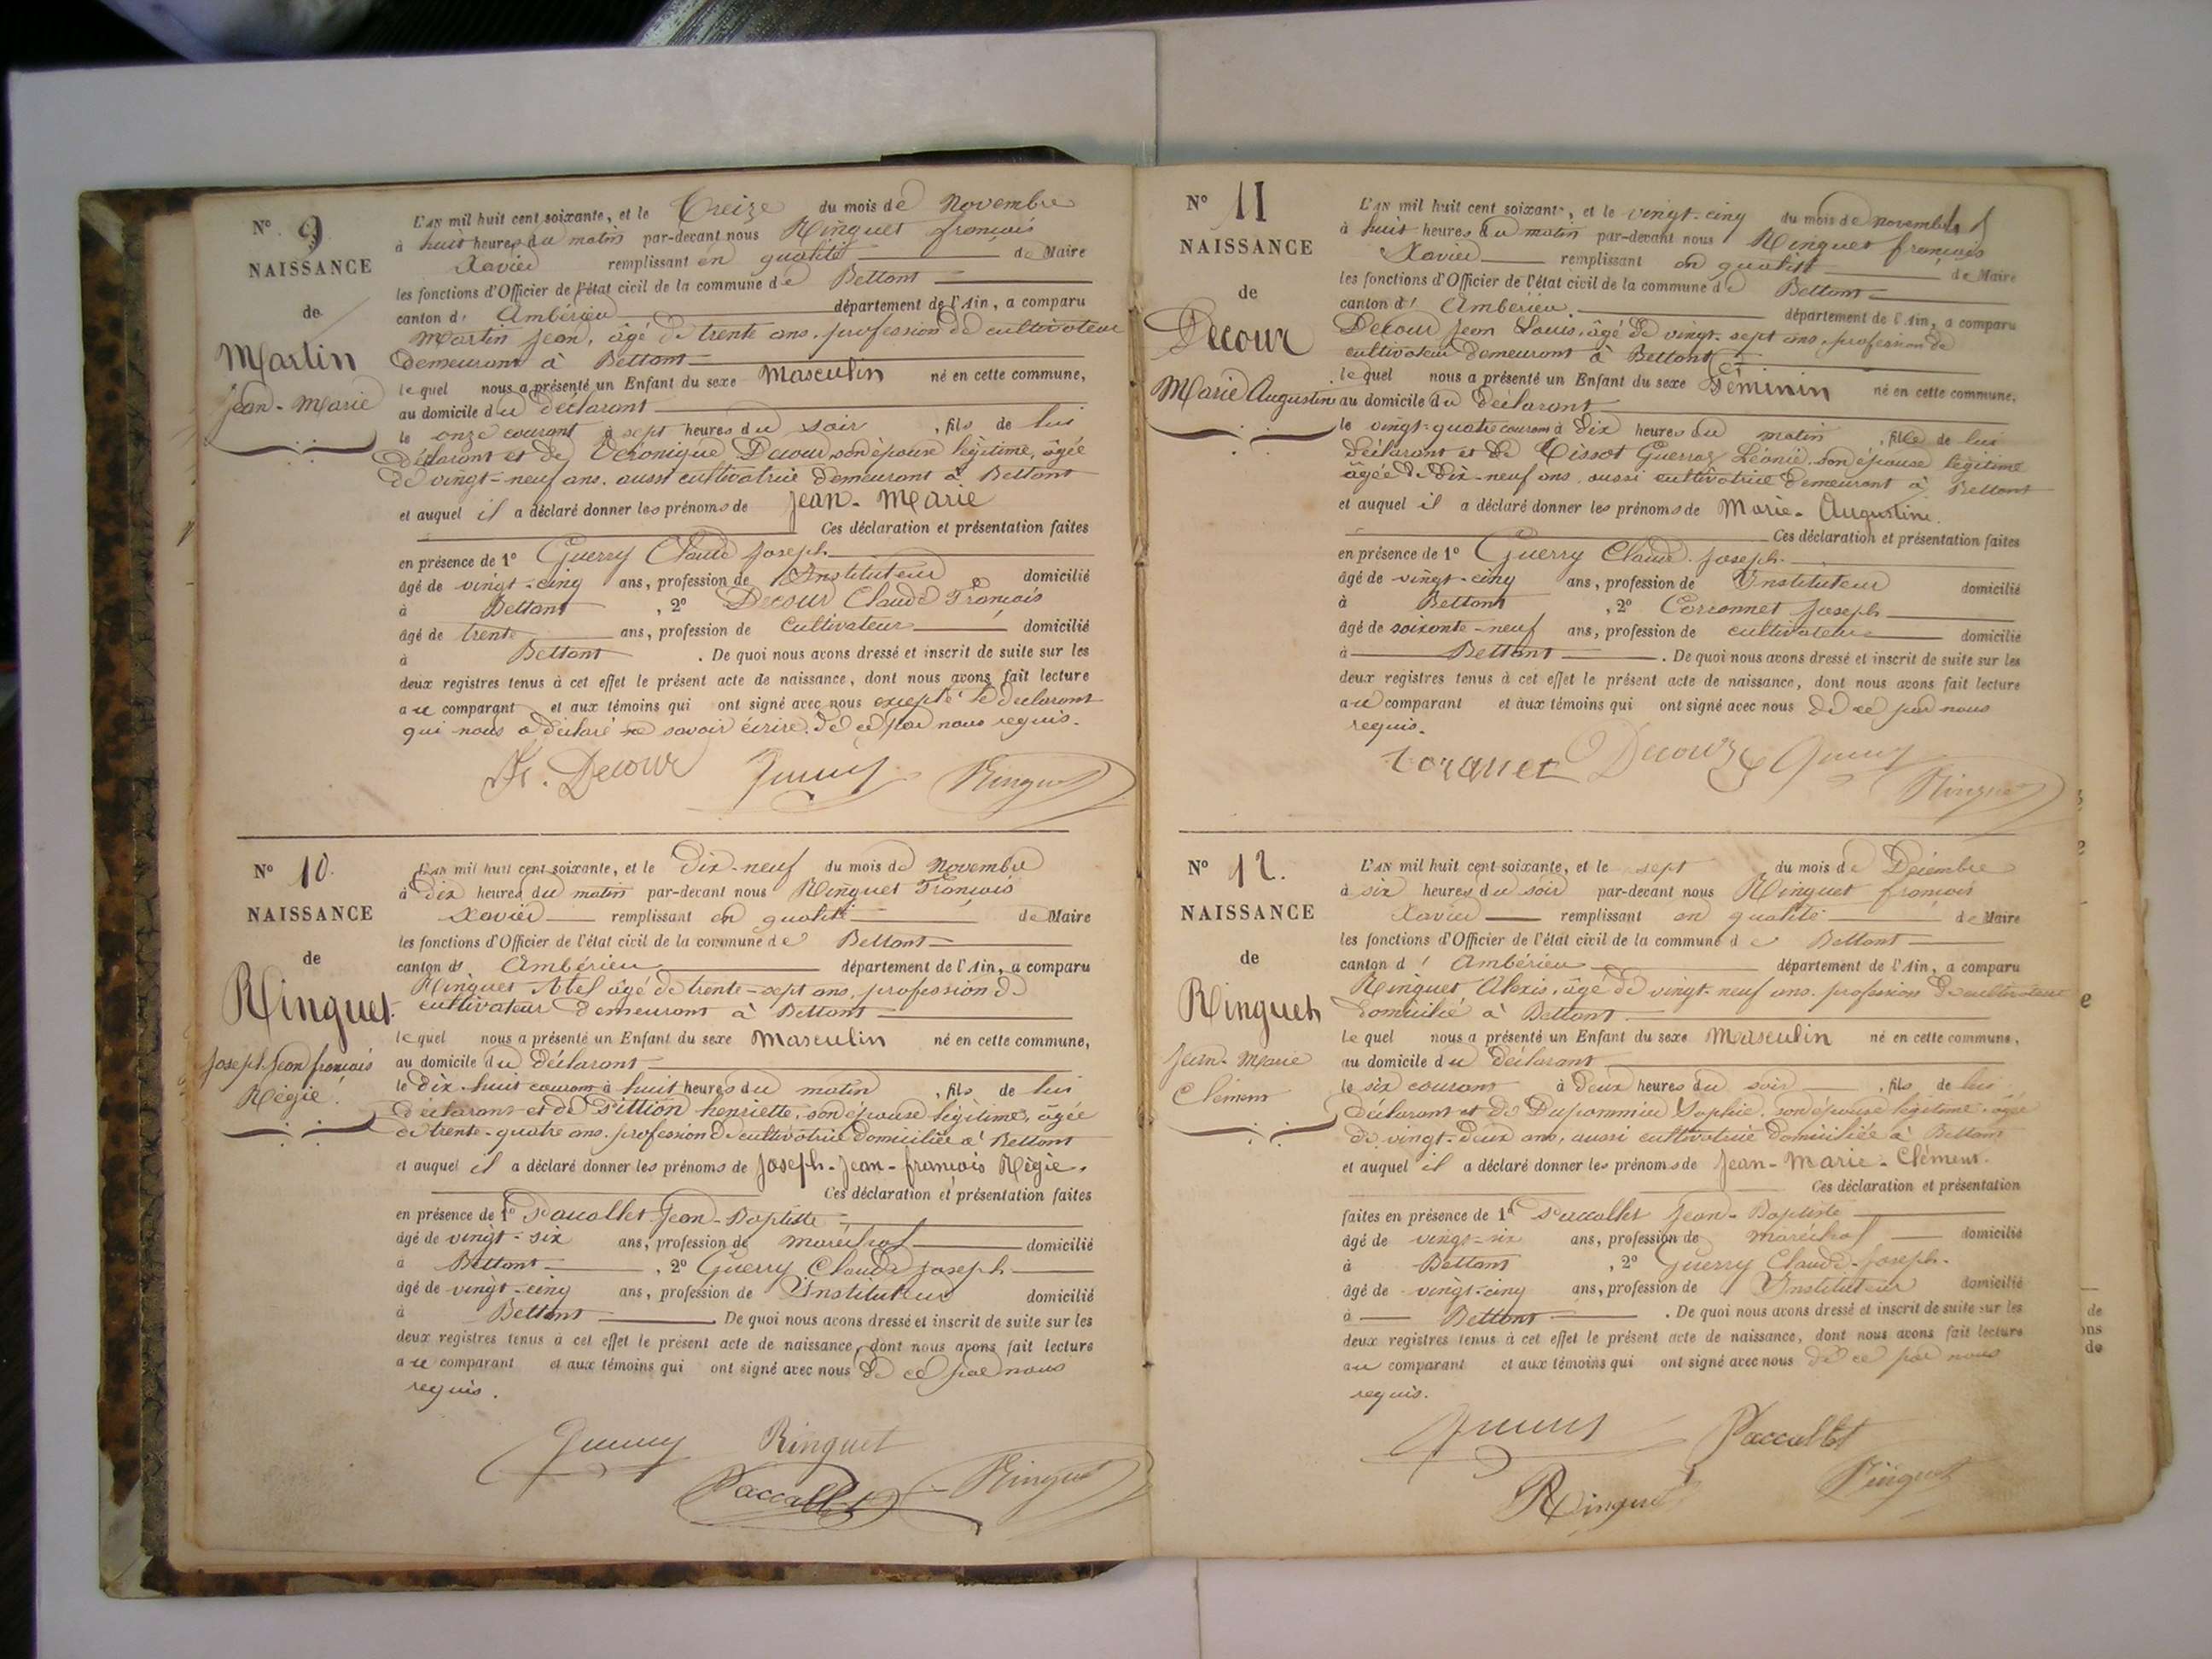 N° 9
NAISSANCE
de
Martin
Jean-Marie
L'AN mil huit cent soixante, et le Treize du mois de Novembre
à huit heures du matin par-devant nous Ringuet françois
Xavier remplissant en qualité de Maire
les fonctions d'Officier de l'état civil de la commune de Bettant
canton d' Ambérieu département de l'Ain, a comparu
Martin Jean, âgé de trente ans, profession de cultivateur
demeurant à Bettant
lequel nous a présenté un Enfant du sexe Masculin né en cette commune,
au domicile du déclarant
le onze courant à sept heures du soir, fils de lui
déclarant et de Véronique Decour, son épouse légitime, âgée
de vingt-neuf ans, aussi cultivatrice demeurant à Bettant
et auquel il a déclaré donner les prénoms de Jean-Marie
Ces déclaration et présentation faites
en présence de 1° Guerry Claude Joseph
âgé de vingt-cinq ans, profession de Instituteur domicilié
à Bettant, 2° Decour Claude François
âgé de trente ans, profession de Cultivateur domicilié
à Bettant. De quoi nous avons dressé et inscrit de suite sur les
deux registres tenus à cet effet le présent acte de naissance, dont nous avons fait lecture
au comparant et aux témoins qui ont signé avec nous excepté le déclarant
qui nous a déclaré ne savoir écrire, de ce par nous requis.
Decour Guerry Ringuet
N° 10.
NAISSANCE
de
Ringuet.
Joseph Jean françois
Régie.
L'AN mil huit cent soixante, et le Dix-neuf du mois de Novembre
à Dix heures du matin par-devant nous Ringuet François
Xavier remplissant en qualité de Maire
les fonctions d'Officier de l'état civil de la commune de Bettant
canton d' Ambérieu département de l'Ain, a comparu
Ringuet Abel âgé de trente-sept ans, profession de
cultivateur demeurant à Bettant
lequel nous a présenté un Enfant du sexe Masculin né en cette commune,
au domicile du déclarant
le dix-huit courant à huit heures du matin, fils de lui
déclarant et de Pittion henriette, son épouse légitime, âgée
de trente-quatre ans, profession de cultivatrice domiciliée à Bettant
et auquel il a déclaré donner les prénoms de Joseph-Jean-françois Régie.
Ces déclaration et présentation faites
en présence de 1° Paccallet Jean-Baptiste
âgé de vingt-six ans, profession de maréchal domicilié
à Bettant, 2° Guerry Claude Joseph
âgé de vingt-cinq ans, profession de Instituteur domicilié
à Bettant. De quoi nous avons dressé et inscrit de suite sur les
deux registres tenus à cet effet le présent acte de naissance, dont nous avons fait lecture
au comparant et aux témoins qui ont signé avec nous de ce par nous
requis.
Guerry Ringuet
Paccallet Ringuet
N° 11
NAISSANCE
de
Decour
Marie Augustine
L'AN mil huit cent soixante, et le vingt-cinq du mois de novembre
à huit heures du matin par-devant nous Ringuet françois
Xavier remplissant en qualité de Maire
les fonctions d'Officier de l'état civil de la commune de Bettant
canton d' Ambérieu. département de l'Ain, a comparu
Decour Jean Louis, âgé de vingt-sept ans, profession de
cultivateur demeurant à Bettant
lequel nous a présenté un Enfant du sexe Féminin né en cette commune,
au domicile du déclarant
le vingt-quatre courant à dix heures du matin, fille de lui
déclarant et de Tissot Guerraz Léonie, son épouse légitime
âgée de dix-neuf ans, aussi cultivatrice demeurant à Bettant
et auquel il a déclaré donner les prénoms de Marie-Augustine.
Ces déclaration et présentation faites
en présence de 1° Guerry Claude Joseph
âgé de vingt-cinq ans, profession de Instituteur domicilié
à Bettant, 2° Corronnet Joseph
âgé de soixante-neuf ans, profession de cultivateur domicilié
à Bettant. De quoi nous avons dressé et inscrit de suite sur les
deux registres tenus à cet effet le présent acte de naissance, dont nous avons fait lecture
au comparant et aux témoins qui ont signé avec nous de ce par nous
requis.
Decour Guerry
Ringuet
N° 12.
NAISSANCE
de
Ringuet
Jean-Marie
Clément
L'AN mil huit cent soixante, et le sept du mois de Décembre
à six heures du soir par-devant nous Ringuet françois
Xavier remplissant en qualité de Maire
les fonctions d'Officier de l'état civil de la commune de Bettant
canton d' Ambérieu département de l'Ain, a comparu
Ringuet Alexis, âgé de vingt-neuf ans, profession de cultivateur
domicilié à Bettant
lequel nous a présenté un Enfant du sexe Masculin né en cette commune,
au domicile du déclarant
le six courant à deux heures du soir, fils de lui
déclarant et de Dupommier Sophie, son épouse légitime, âgée
de vingt-deux ans, aussi cultivatrice domiciliée à Bettant
et auquel il a déclaré donner les prénoms de Jean-Marie-Clément.
Ces déclaration et présentation
faites en présence de 1° Paccallet Jean-Baptiste
âgé de vingt-six ans, profession de maréchal domicilié
à Bettant, 2° Guerry Claude-Joseph.
âgé de vingt-cinq ans, profession de Instituteur domicilié
à Bettant. De quoi nous avons dressé et inscrit de suite sur les
deux registres tenus à cet effet le présent acte de naissance, dont nous avons fait lecture
au comparant et aux témoins qui ont signé avec nous de ce par nous
requis.
Guerry Paccallet
Ringuet Ringuet
e
de
ons
de